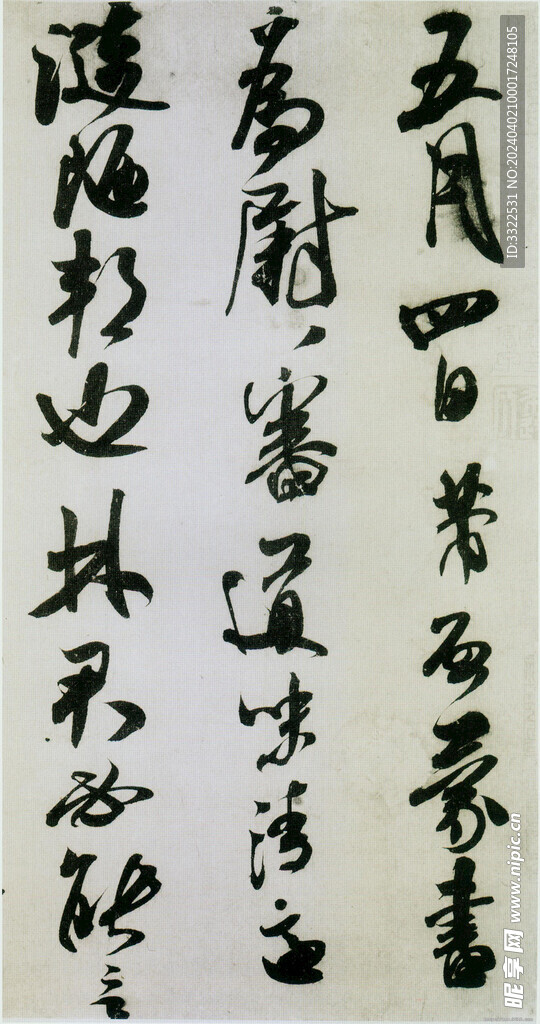 五月四日芾啓蒙書
為尉〻審道味清適
漣陋邦也林君必能言
ID:3322531 NO:20240402100017248105
昵享网 www.nipic.cn